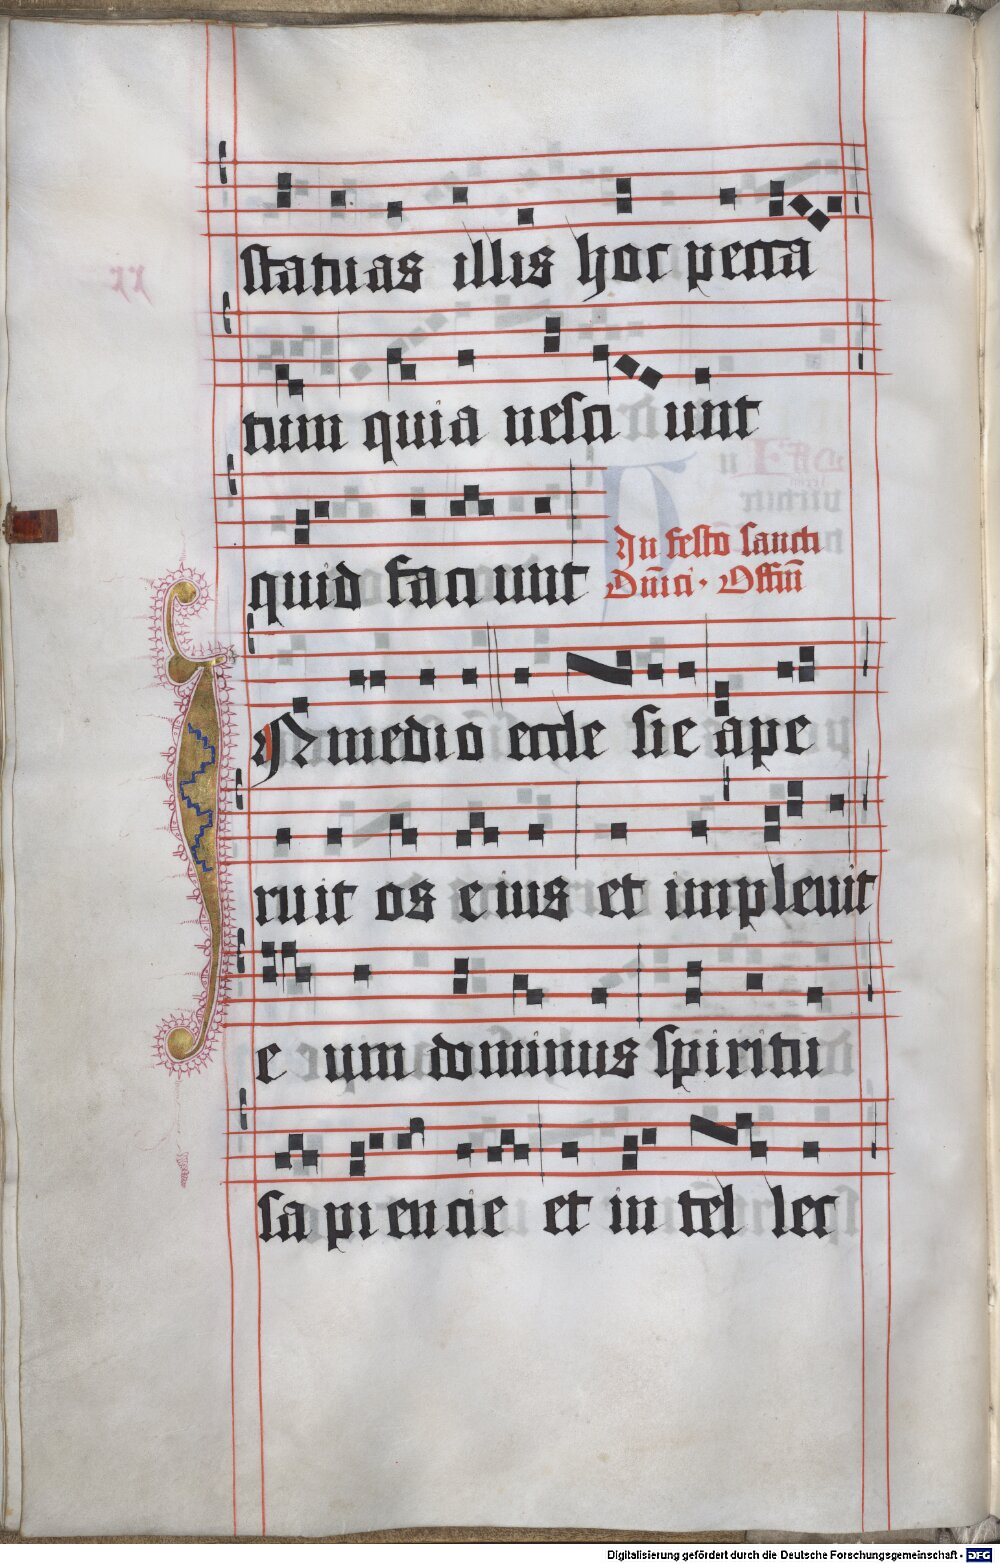 statuas illis hoc pecca
tum quia nesci unt
quid faci unt
In festo sancti
Dn̄ici · Offm̄
IN medio eccle sie ape
ruit os eius et impleuit
e um dominus spiritu
sa pi en cie et in tel lec
Digitalisierung gefördert durch die Deutsche Forschungsgemeinschaft - DFG